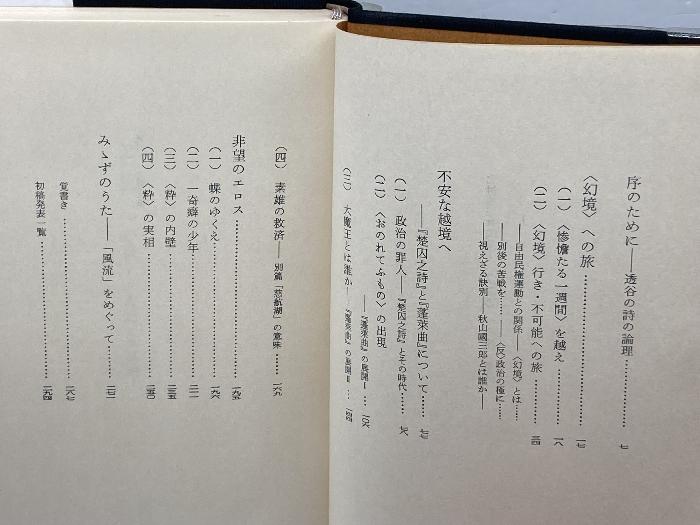 序のために――透谷の詩の論理……………七
〈幻境〉への旅……………………一七
(一) 〈惨憺たる一週間〉を越え……一八
(二) 〈幻境〉行き・不可能への旅……三四
――自由民権運動との関係――〈幻境〉とは――
――別後の苦戦を……〈反〉政治の極に――
――視えざる訣別――秋山國三郎とは誰か――
不安な越境へ
――『楚囚之詩』と『蓬萊曲』について……七七
(一) 政治の罪人――『楚囚之詩』とその時代……七八
(二) 〈おのれてふもの〉の出現
――『蓬萊曲』の展開Ⅰ……一〇八
(三) 大魔王とは誰か――『蓬萊曲』の展開Ⅱ……一四四
(四) 素雄の救済――別篇「慈航湖」の意味……一六九
非望のエロス……………………一九五
(一) 蝶のゆくえ……………一九六
(二) 一奇癖の少年…………二一一
(三) 〈粋〉の内壁…………二三五
(四) 〈粋〉の実相…………二五〇
みゝずのうた――「風流」をめぐって……二七一
覚書き……………………二八七
初稿発表一覧……………二九四